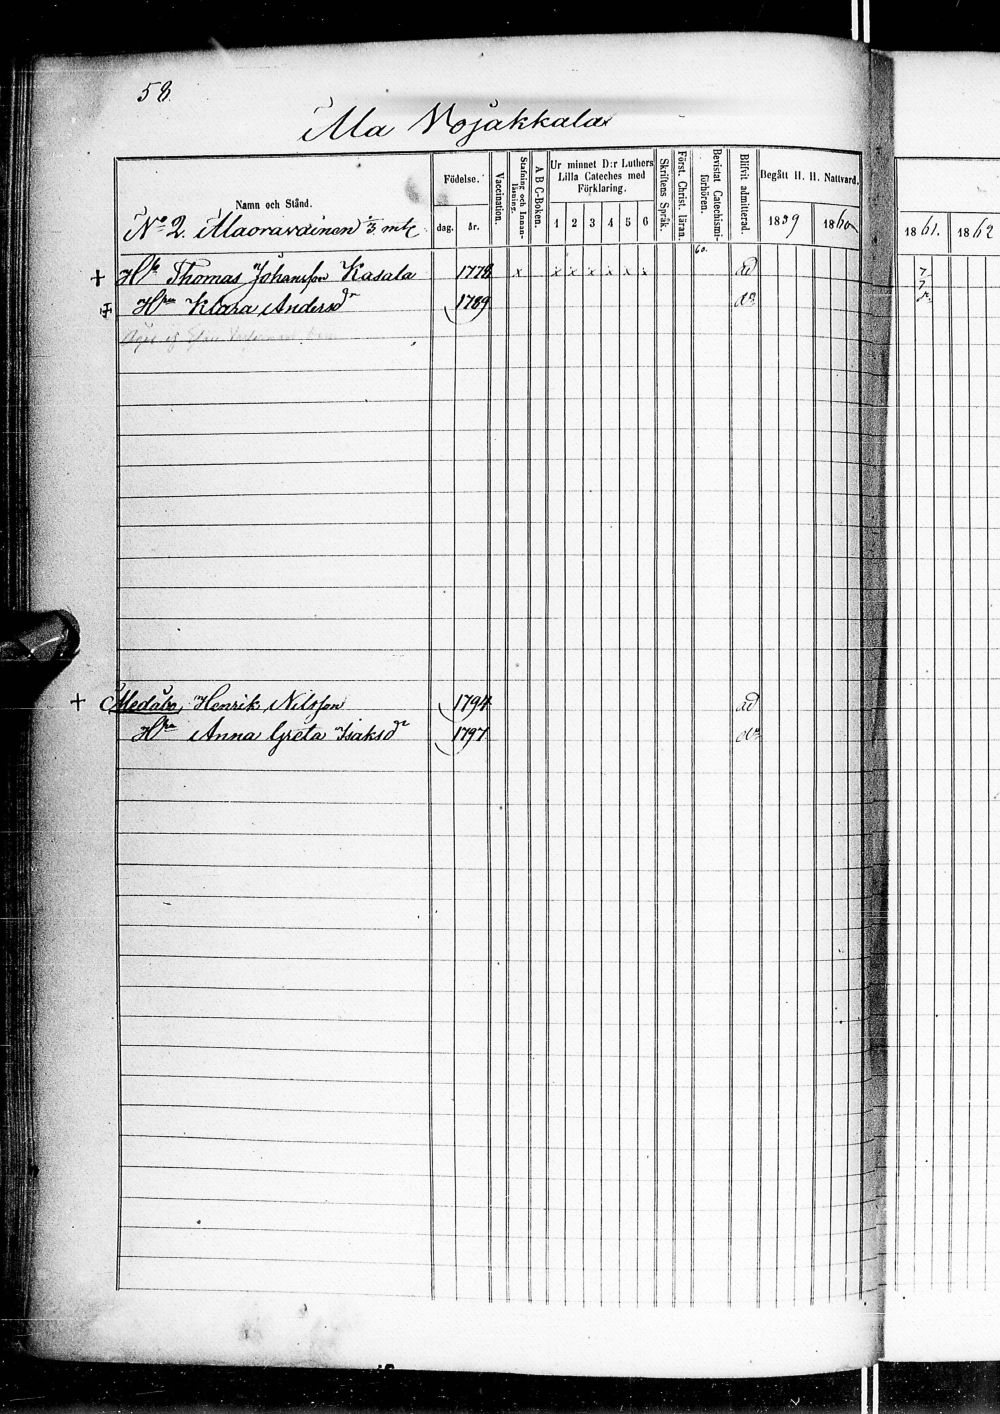 58.
Ala Nojakkala
Namn och Stånd.
Födelse.
dag. år.
Vaccination.
Stafning och Innan-läsning.
A B C-Boken.
Ur minnet D:r Luthers Lilla Cateches med Förklaring.
1 2 3 4 5 6
Skriftens Språk.
Först. Christ. läran.
Bevistat Catechismi-förhören.
Blifvit admitterad.
Begått H. H. Nattvard.
1859 1860
1861. 1862
No 2. Maaravainen 1/3 mtl
60.
+ Hb Thomas Johansson Kasala 1778 x x x x x x x ad 7
Hna Klara Andersdr 1789 do
+ Medåbo, Henrik Nilsson 1794 ad
Hna Anna Greta Isaksdr 1797 do